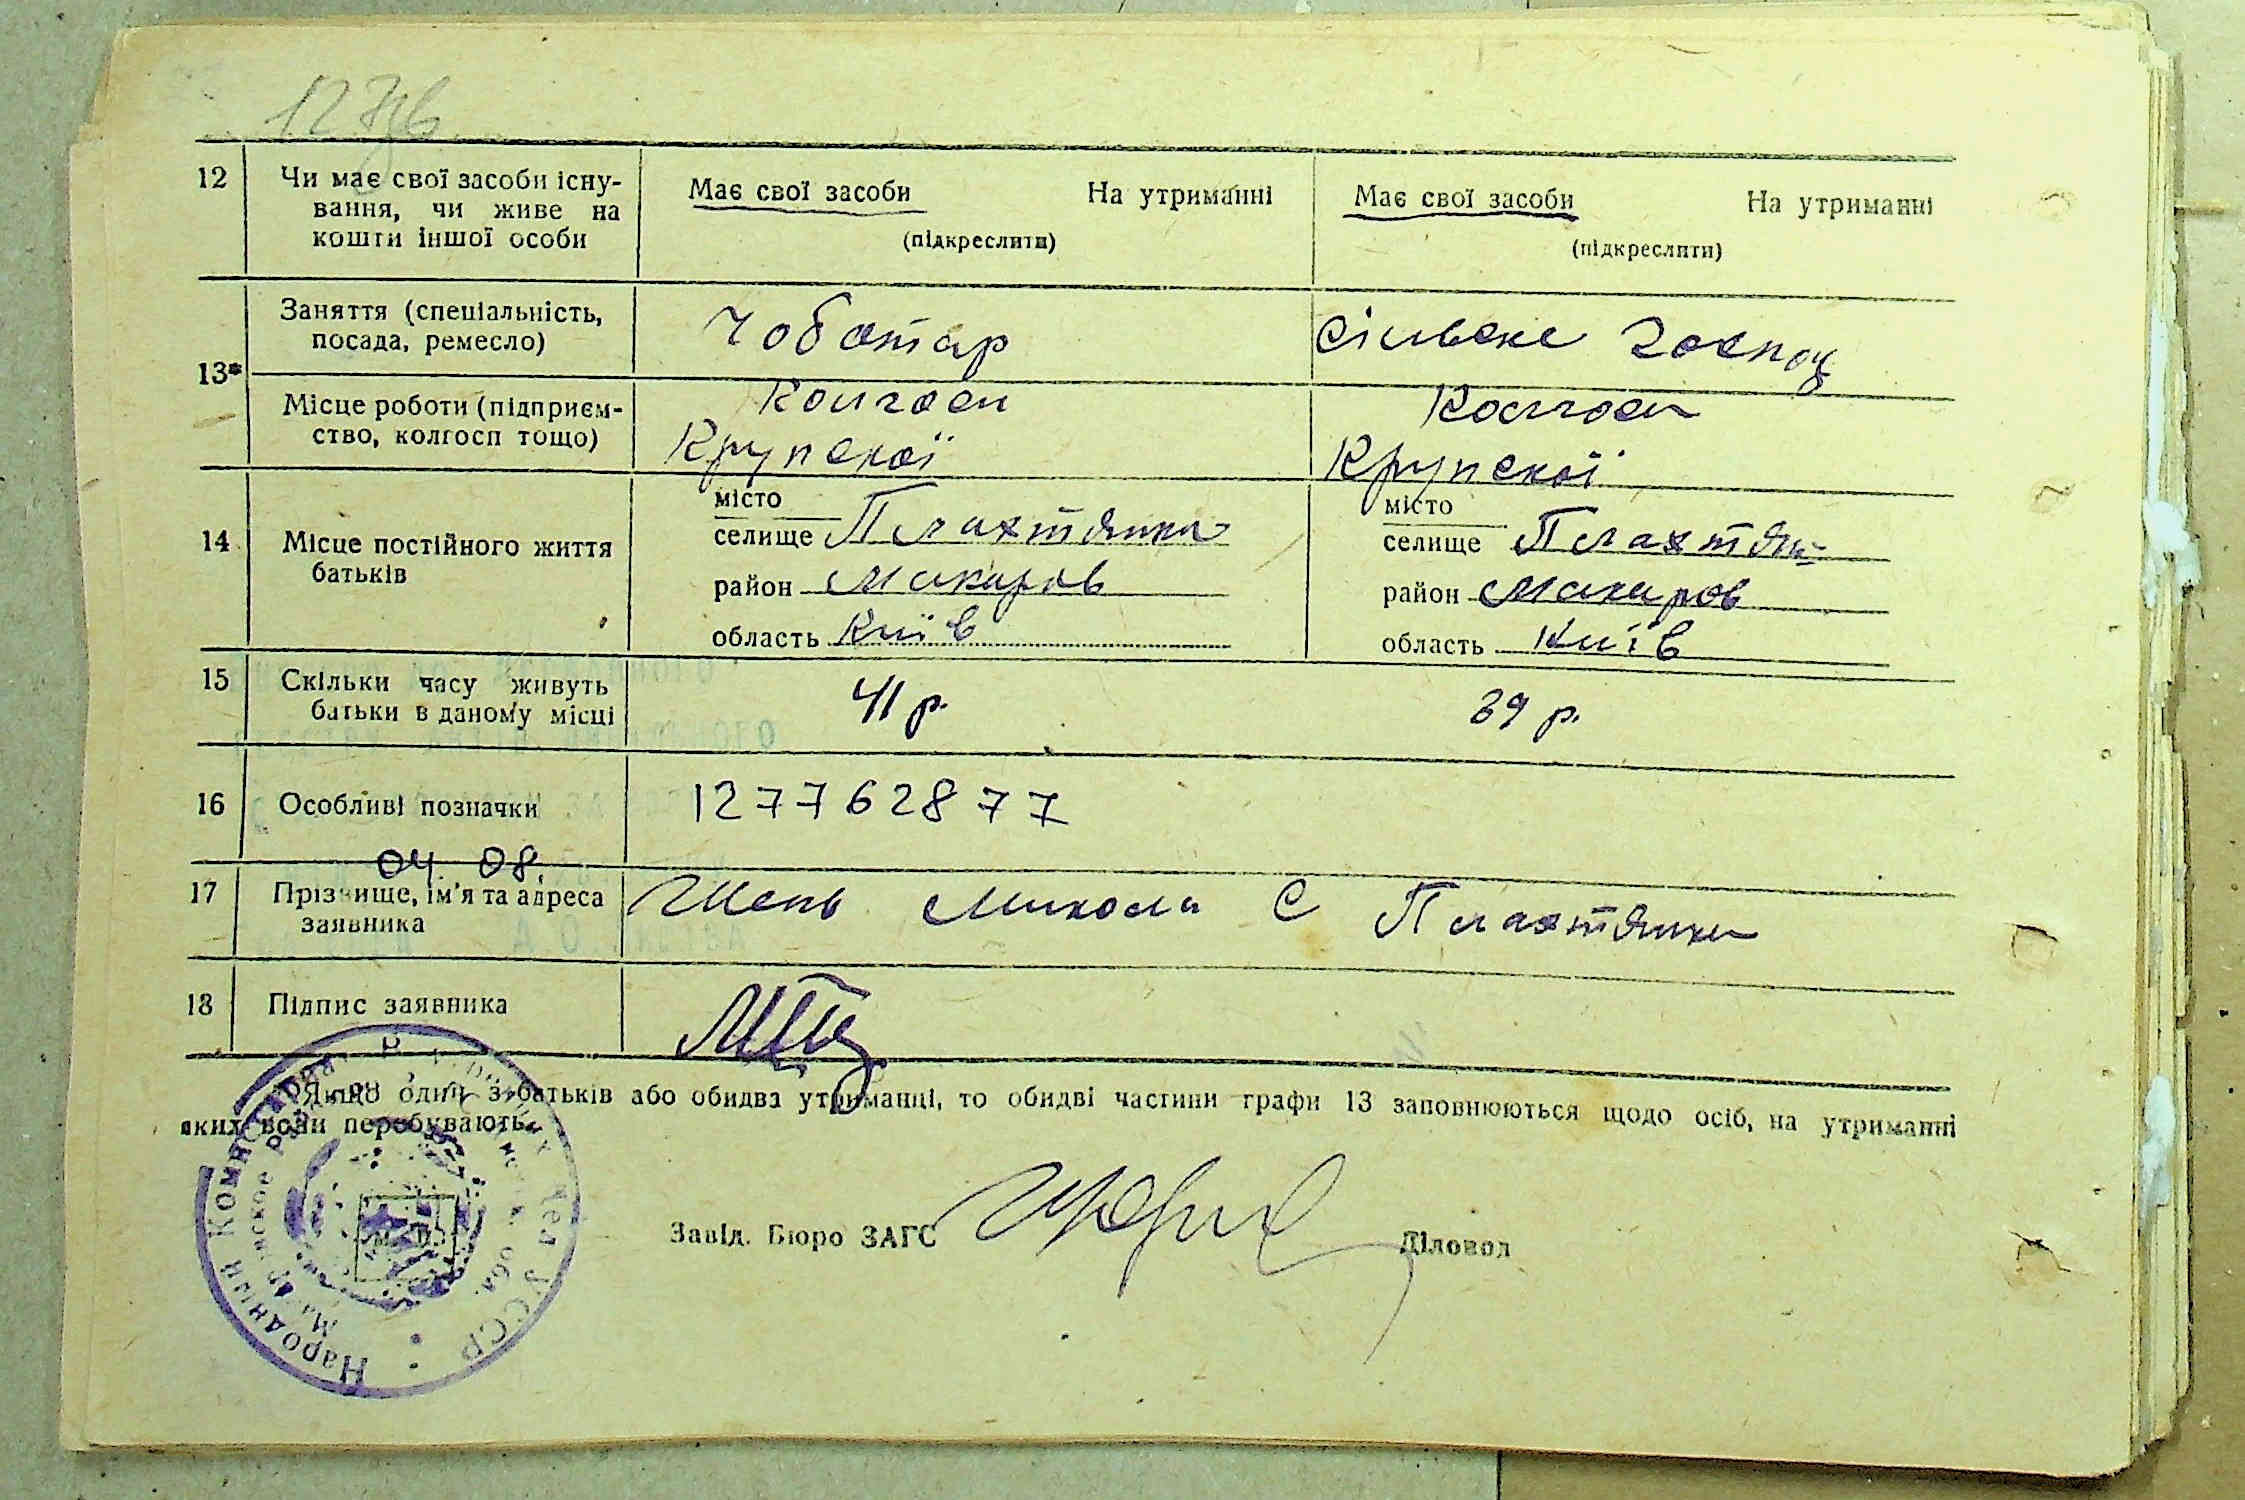 12 Чи має свої засоби існу- Має свої засоби На утриманні Має свої засоби На утриманні
вання, чи живе на
кошти іншої особи (підкреслити) (підкреслити)
Заняття (спеціальність, Чоботар Сільське господ
посада, ремесло)
13*
Місце роботи (підприєм- Колгосп Колгосп
ство, колгосп тощо) Крупскої Крупскої
місто місто
14 Місце постійного життя селище Плахтянка селище Плахтян
батьків район Макаров район Макаров
область Київ область Київ
15 Скільки часу живуть 41 р. 39 р.
батьки в даному місці
16 Особливі позначки 1277762877
04. 08.
17 Прізвище, ім'я та адреса Микола С Плахтянка
заявника
18 Підпис заявника
*Якщо один з батьків або обидва утриманці, то обидві частини графи 13 заповнюються щодо осіб, на утриманні
яких вони перебувають.
Завід. Бюро ЗАГС Діловод
Народний Комиссариат УССР
обл.
М. П.